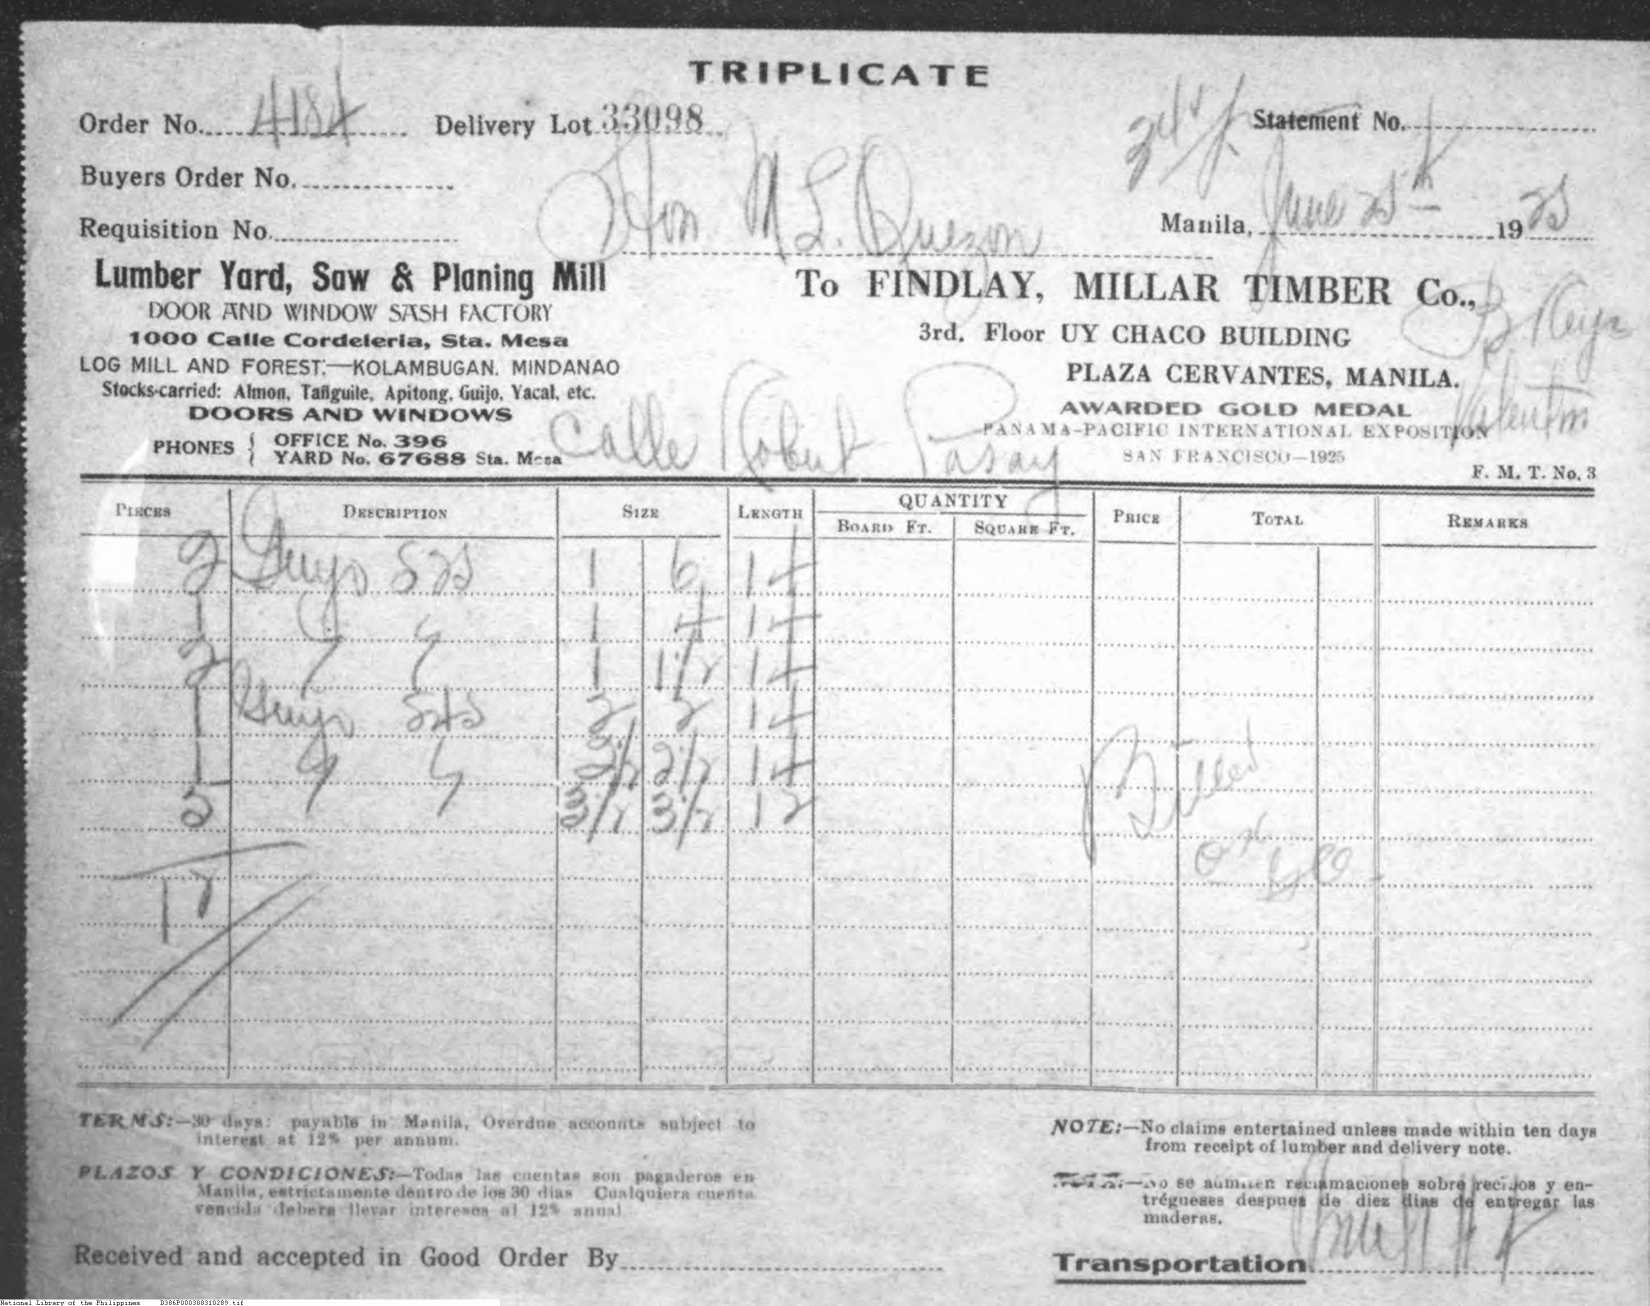 TRIPLICATE
Order No. 4184 Delivery Lot 33098 Statement No.
Buyers Order No.
Requisition No. Hon M L. Quezon Manila, June 25th 1925
Lumber Yard, Saw & Planing Mill
DOOR AND WINDOW SASH FACTORY
1000 Calle Cordeleria, Sta. Mesa
LOG MILL AND FOREST:—KOLAMBUGAN. MINDANAO
Stocks-carried: Almon, Tañguile, Apitong, Guijo, Yacal, etc.
DOORS AND WINDOWS
PHONES { OFFICE No. 396
YARD No. 67688 Sta. Mesa
To FINDLAY, MILLAR TIMBER Co.,
3rd. Floor UY CHACO BUILDING
PLAZA CERVANTES, MANILA.
AWARDED GOLD MEDAL
PANAMA-PACIFIC INTERNATIONAL EXPOSITION
SAN FRANCISCO—1925
Valentin
Calle Robert Pasay
F. M. T. No. 3
PIECES DESCRIPTION SIZE LENGTH QUANTITY PRICE TOTAL REMARKS
BOARD FT. SQUARE FT.
2 Guijo S2S 1 6 14
1 " " 1 4 14
2 " " 1 1 1/2 14
1 Guijo S4S 2 2 14
1 " " 2 1/2 2 1/2 14
5 " " 3 1/2 3 1/2 12
Billed
TERMS:—30 days: payable in Manila, Overdue accounts subject to
interest at 12% per annum.
PLAZOS Y CONDICIONES:—Todas las cuentas son pagaderos en
Manila, estrictamente dentro de los 30 dias Cualquiera cuenta
vencida debera llevar intereses al 12% annual
NOTE:—No claims entertained unless made within ten days
from receipt of lumber and delivery note.
NOTA:—No se admiten reclamaciones sobre recibos y en-
trégueses despues de diez dias de entregar las
maderas.
Received and accepted in Good Order By
Transportation